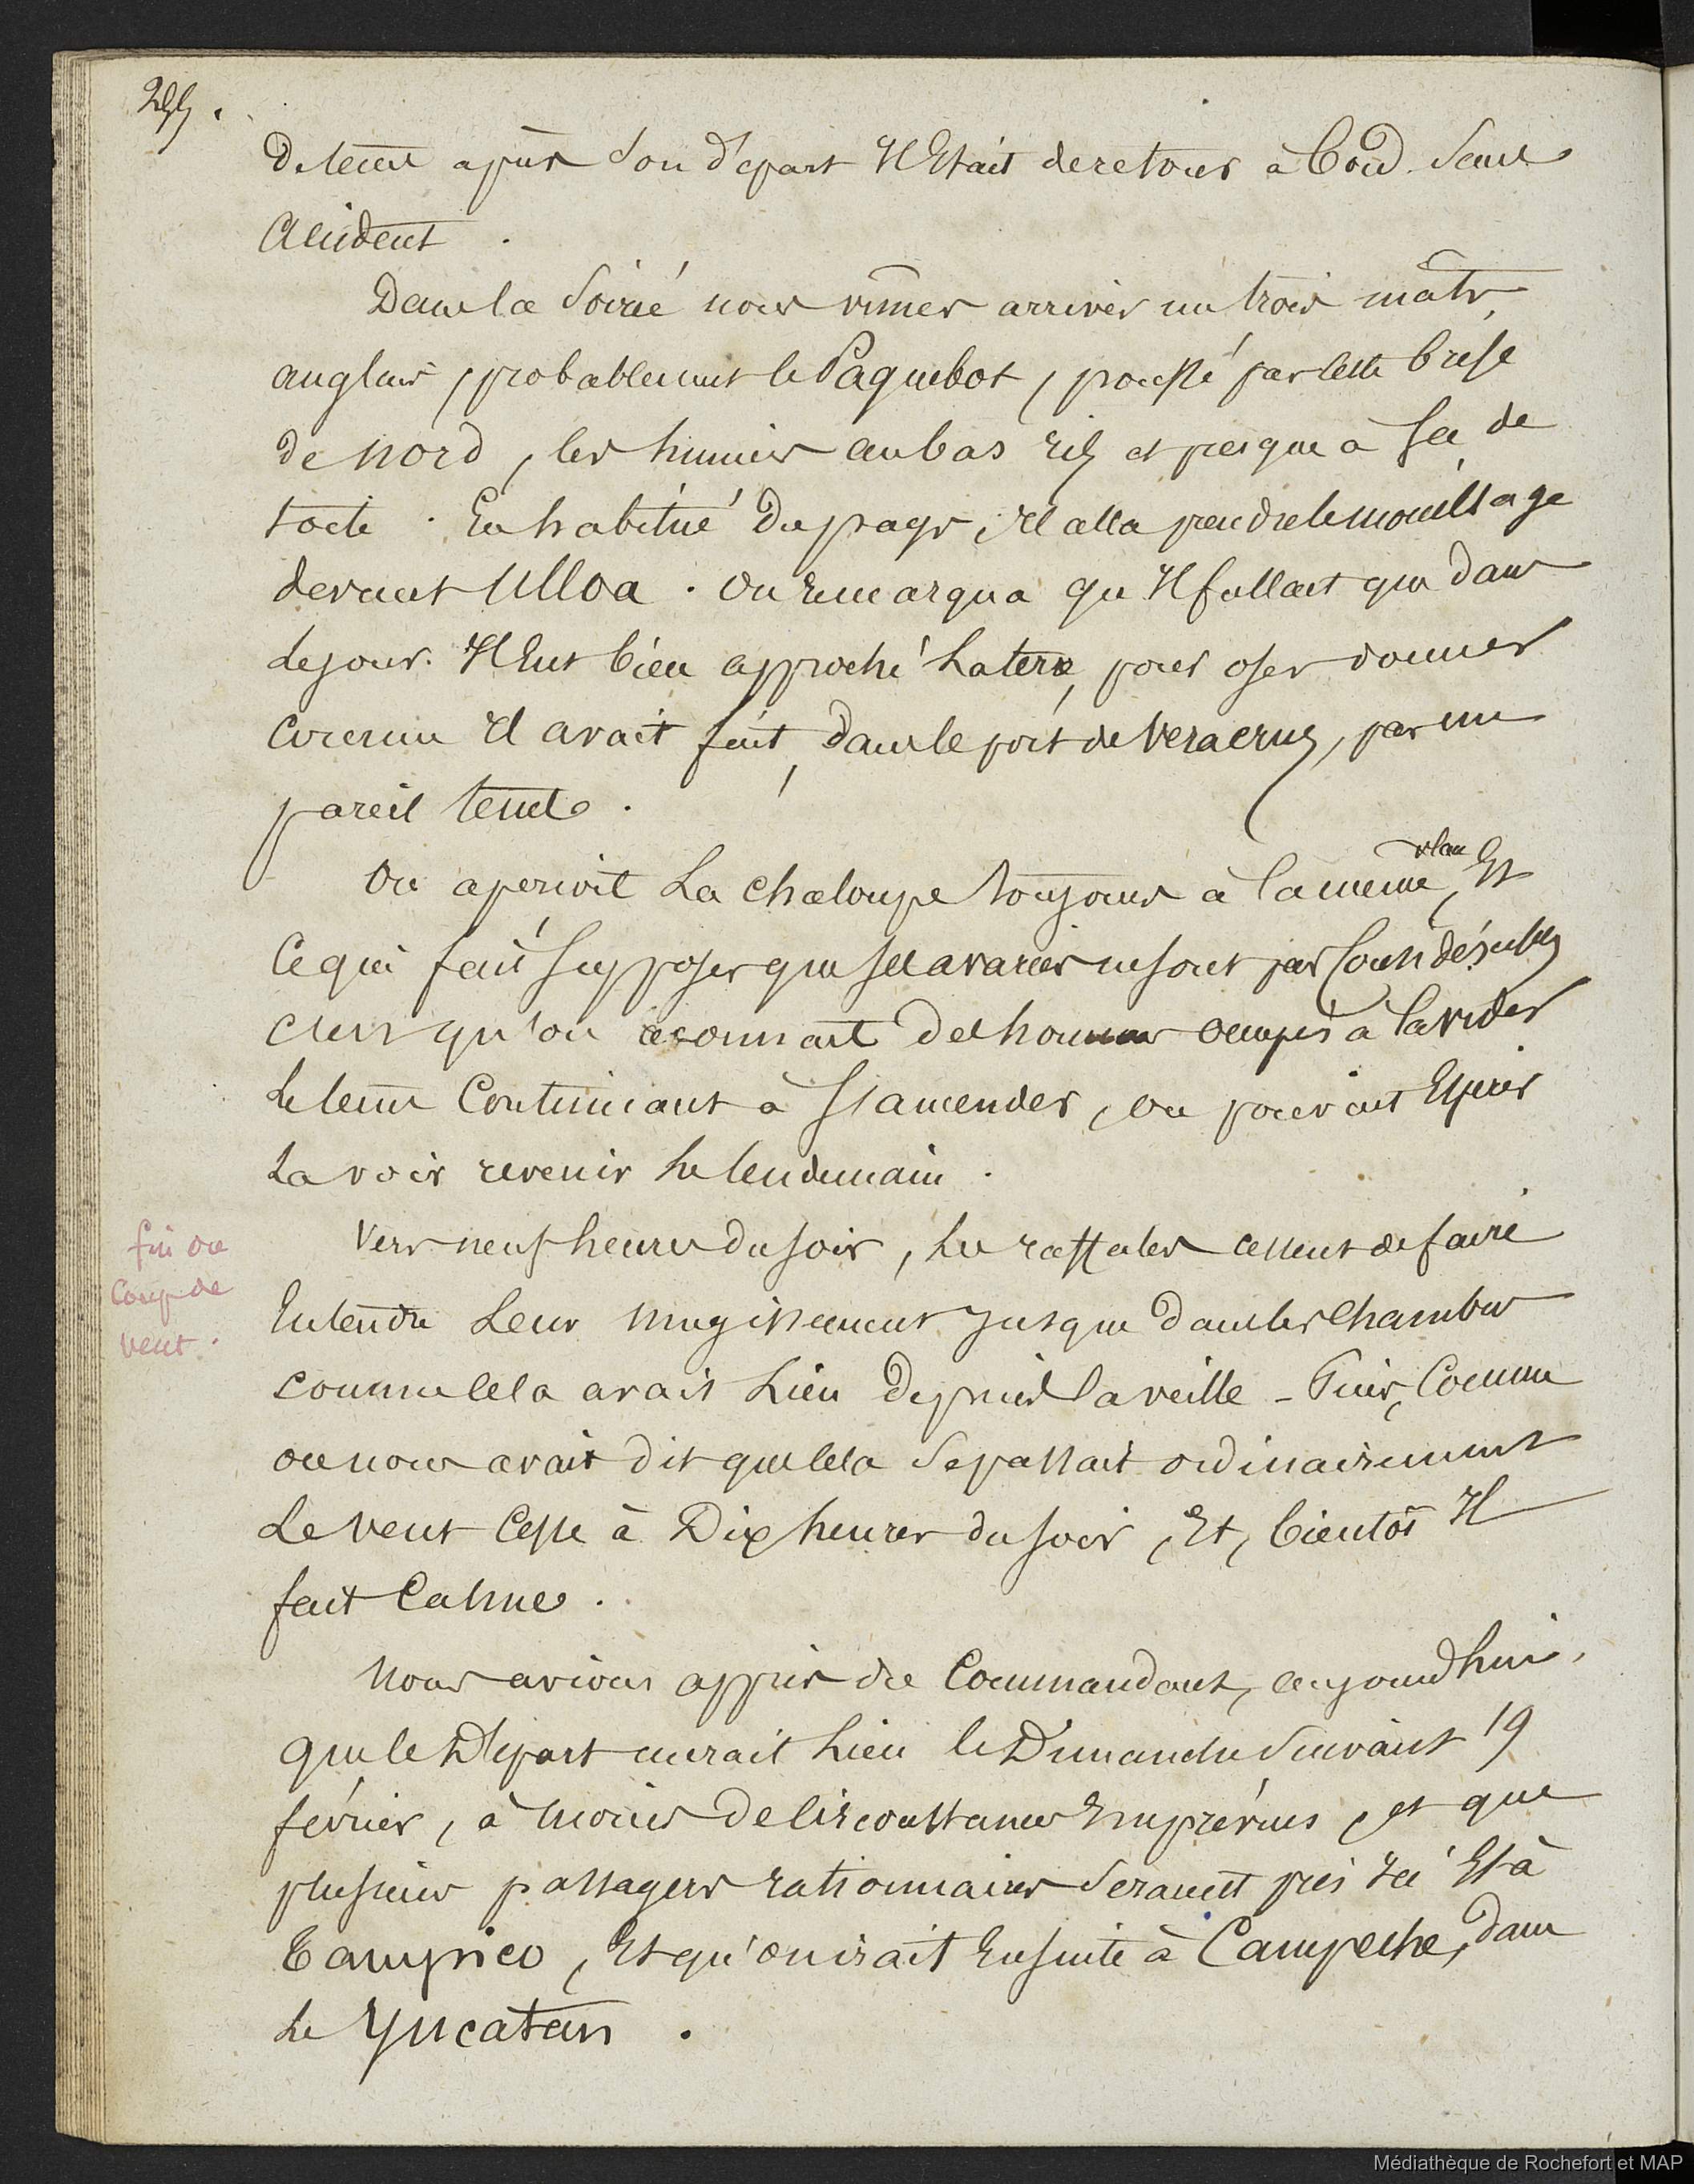 Detems après Son départ Il Etait de retour à bord Sans
Accident.
Dans la Soirée nous vîmes arriver un trois mâts,
anglais, probablement le Paquebot, poussé par cette brise
de nord, les huniers au bas ris et presque à sec de
toile. En habitué du pays, Il alla prendre le mouillage
devant Ulloa. On remarqua qu'Il fallait que dans
le jour Il Eut bien approché La terre, pour oser donner
Comme Il avait fait, dans le port de Veracruz, par un
pareil tems.
On aperçoit La chaloupe toujours à la même place, Et
Ce qui fait Supposer que Ses avaries ne sont pas Considérables
C'est qu'on reconnait des hommes occupés à la vider
Le tems Continuant à S'amender, on pouvait Espérer
La voir revenir Le lendemain.
Vers neuf heures du soir, Les raffales cessent de faire
Entendre Leur mugissement jusque dans les chambres
comme cela avait Lieu depuis la veille - Puis, Comme
on nous avait dit que cela Se passait ordinairement
Le vent Cesse à Dix heures du soir, Et, bientôt Il
fait Calme.
Nous avions appris du Commandant, aujourd'hui,
que le Départ aurait Lieu le Dimanche Suivant 19
février, à moins de Circonstances Imprévues, et que
plusieurs passagers rationnaires Seraient pris Ici Et à
Tampico, Et qu'on irait Ensuite à Campeche, dans
Le Yucatan.
fin du
Coup de
vent.
Médiathèque de Rochefort et MAP